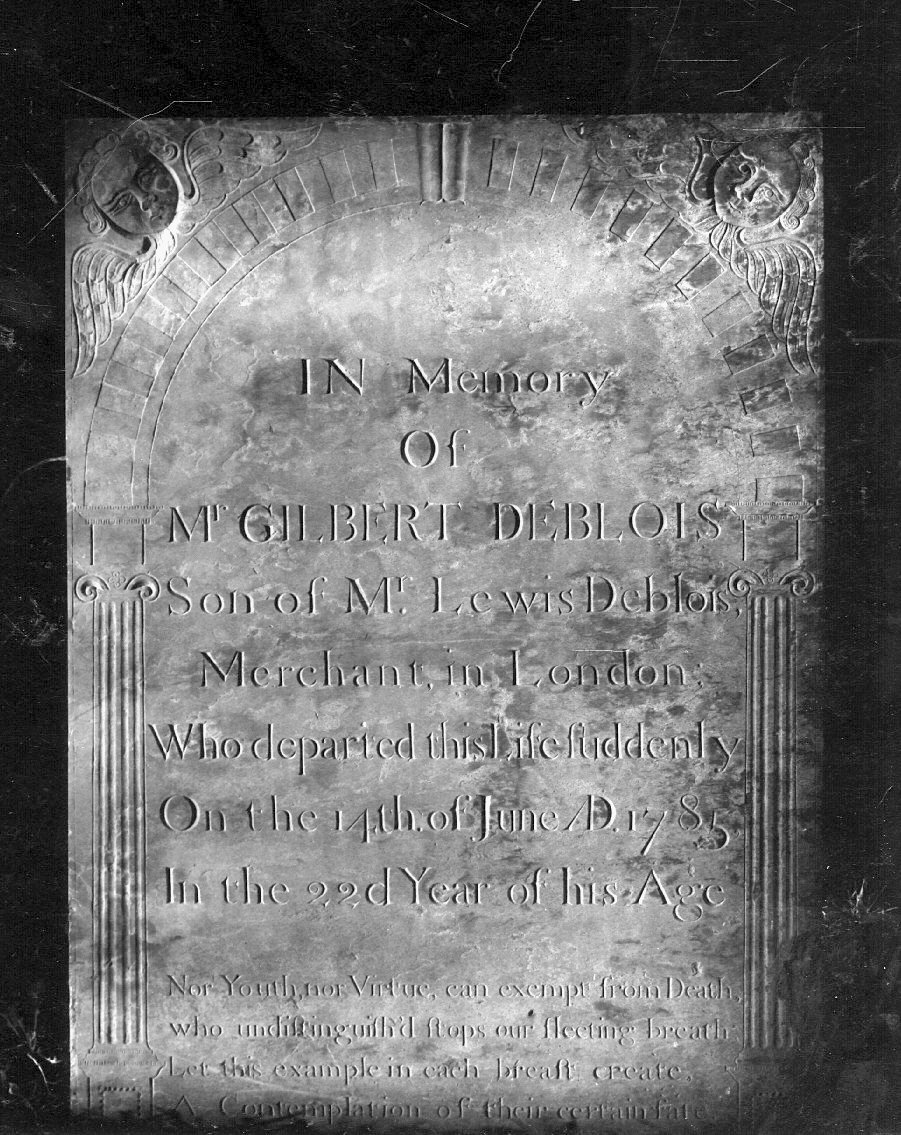 IN Memory
Of
Mr GILBERT DEBLOIS
Son of Mr. Lewis Deblois,
Merchant, in London;
Who departed this Life ſuddenly
On the 14th. of June Æ D. 1785
In the 22d Year of his Age
Nor Youth, nor Virtue, can exempt from Death,
who undiſtinguiſh'd ſtops our fleeting breath
Let this example in each breaſt create,
A Contemplation of their certain fate.